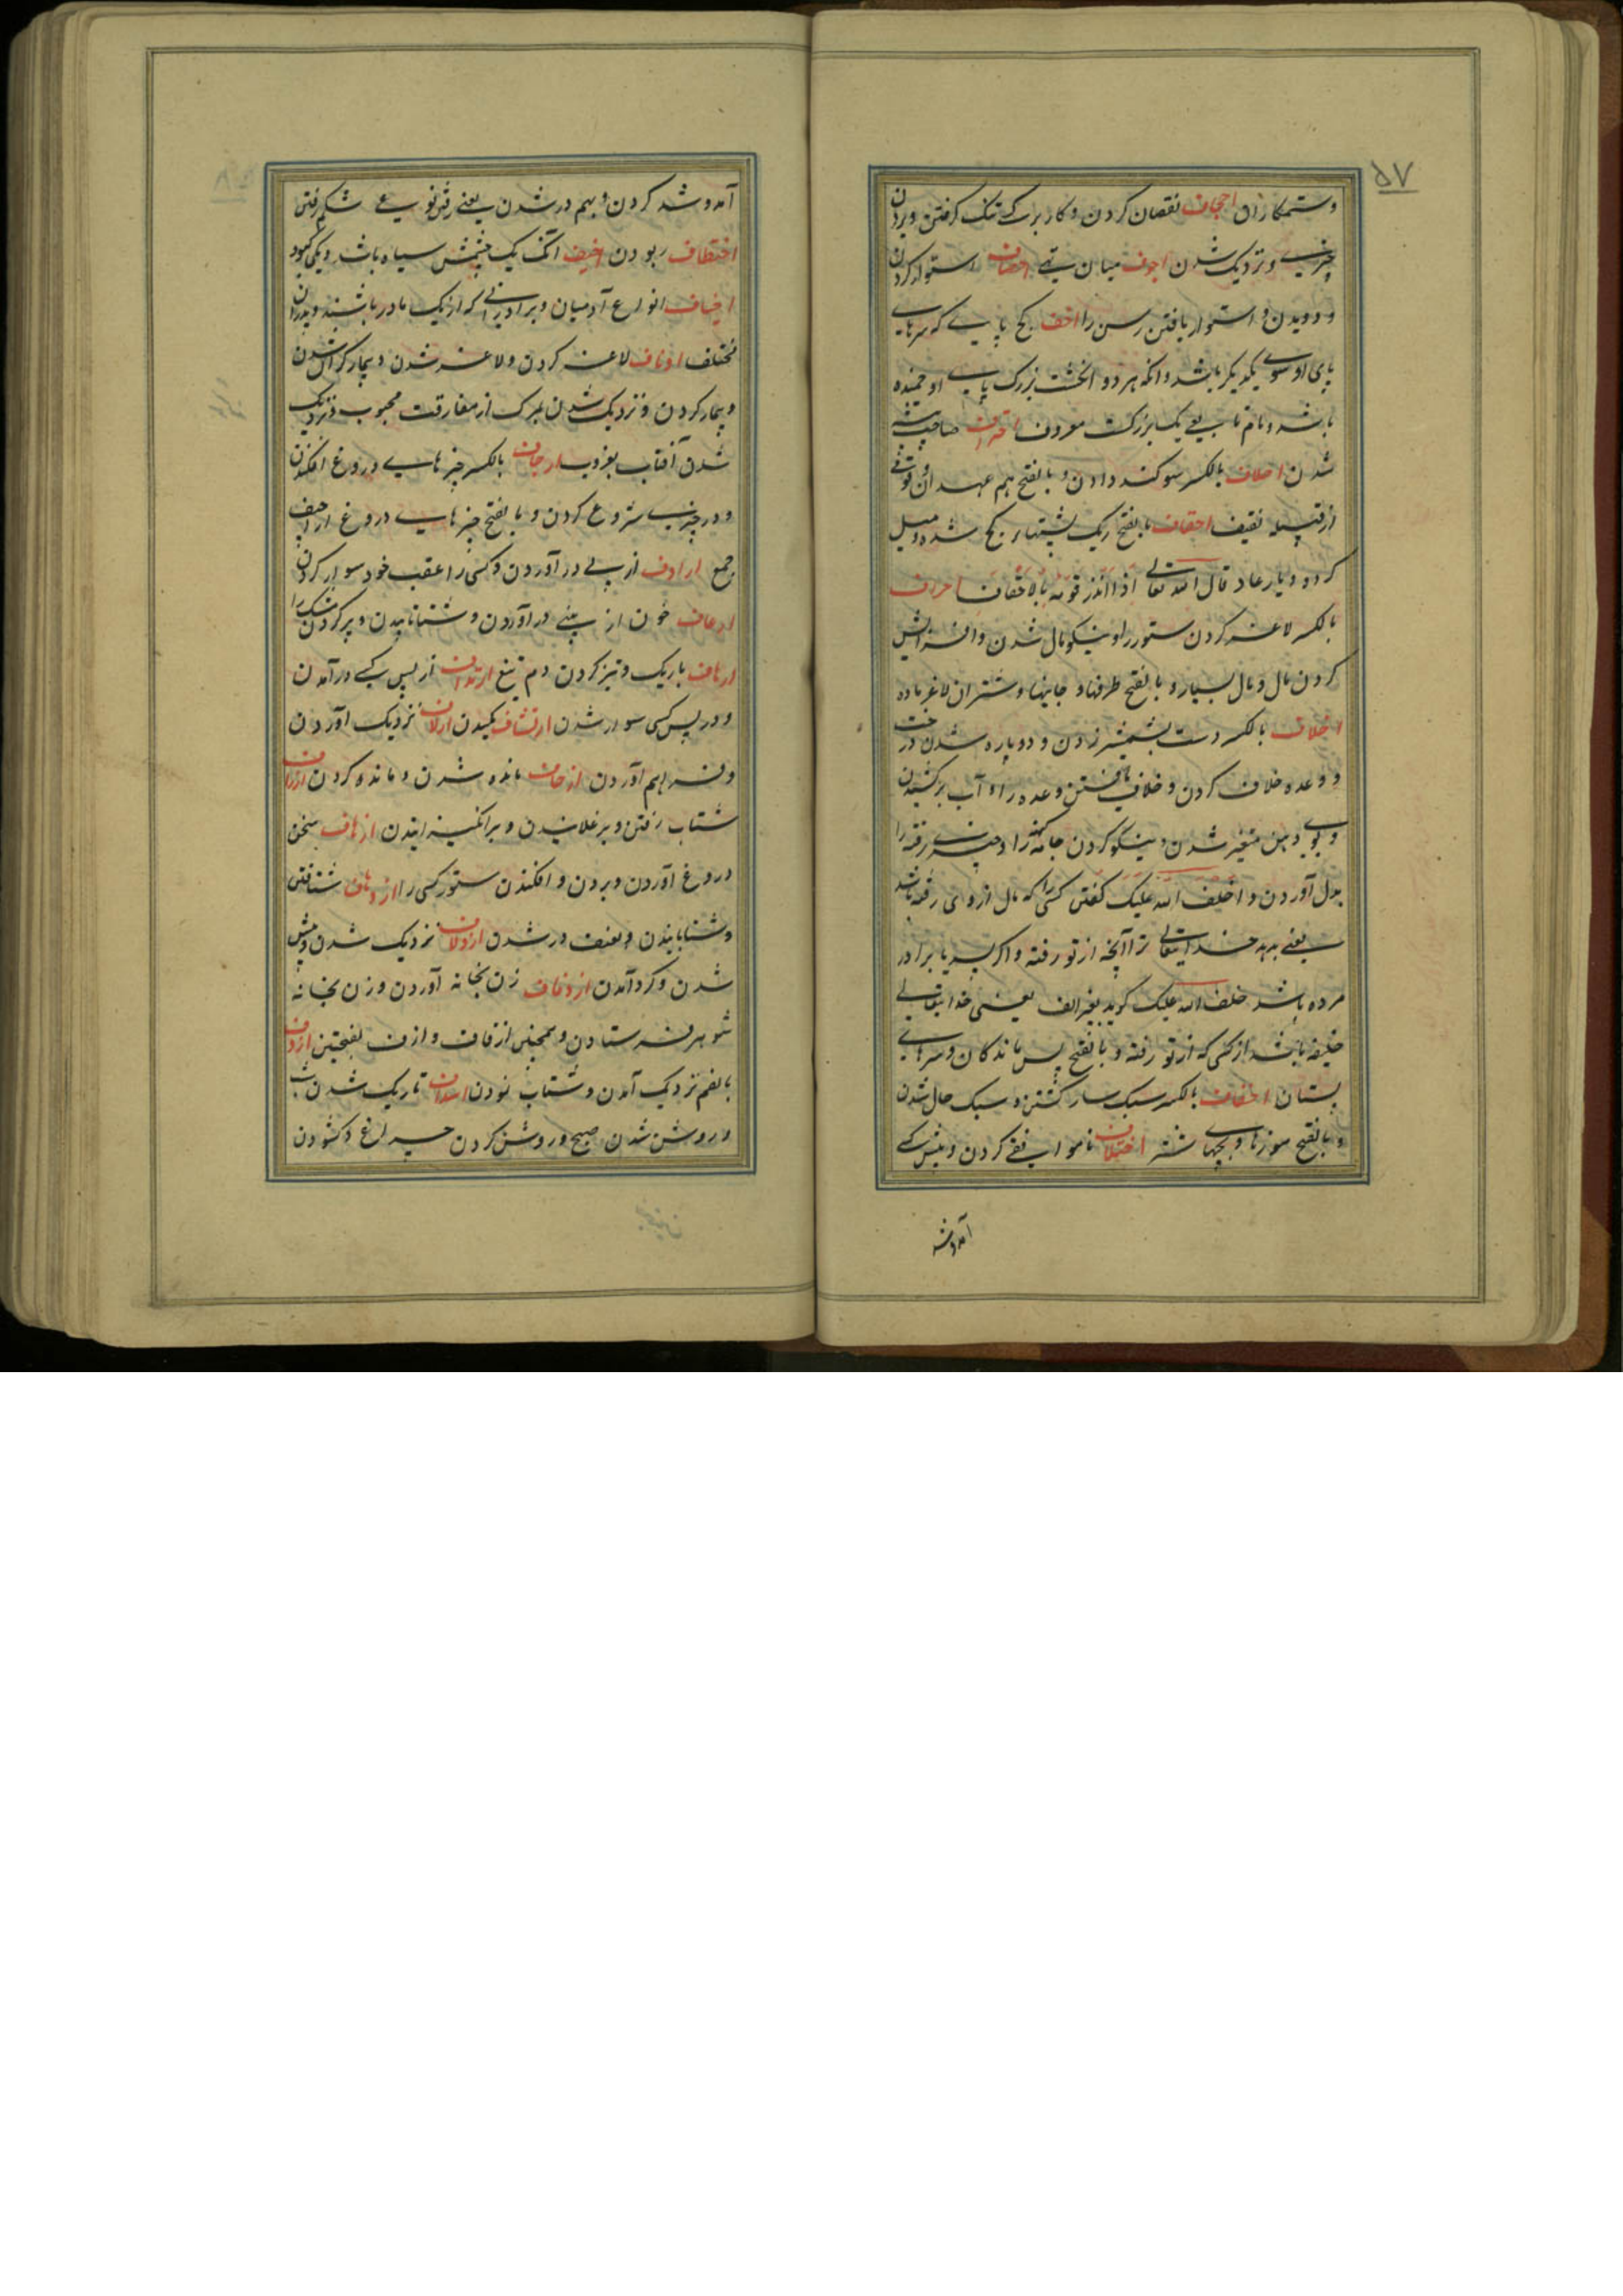 ۵۷
وستمکاران اجحاف نقصان کردن و کار بر کسے تنک کرفتن و بردن
چیزیے و نزدیک شدن اجوف میان تهے احصاف استوار کردن
و دویدن و استوار یافتن رسن را احنف کج پایے که سرهاے
پای او سوے یکدیکر باشد و انکه هر دو انکشت بزرک پاے او خمیده
باشد و نام تابعے یک بزرکست معروف احتراف صاحب پیشه
شدن احلاف بالکسر سوکند دادن و بالفتح هم عهدان و قومی
از قبیله ثقیف احقاف بالفتح ریک پشتهاء کج شده و میل
کرده و دیار عاد قال الله تعالے اذ انذر قومه بالاحقاف احراف
بالکسر لاغر کردن ستور را و نیکو مال شدن و افزایش
کردن مال و مال بسیار و بالفتح طرفها و جانبها و شتران لاغر ماده
اخلاف بالکسر دست بشمشیر زدن و دوباره شدن درخت
و وعده خلاف کردن و خلاف یافتن وعده را و آب برکشیدن
و بوے دهن متغیر شدن و نیکو کردن جامه کهنه را و چیزے رفته را
بدل آوردن و اخلف الله علیک کفتن کسی را که مال از وی رفته باشد
یعنے بدهد خدایتعالے ترا آنچه از تو رفته و اکر پدر یا برادر
مرده باشد خلف الله علیک کوید بغیر الف یعنی خدایتعالے
خلیفه باشد از کسی که از تو رفته و بالفتح پس ماندکان و سرهاے
پستان اخفاف بالکسر سبک سار کشتن و سبک حال شدن
و بالفتح موزها و سمهاے شتر اختلاف ناموافقے کردن و پیش کسے
آمدوشد
آمد و شد کردن و بهم در شدن یعنے رفتن نوعے شکم رفتن
اختطاف ربودن اخیف آنک یک چشمش سیاه باشد و یکی کبود
اخیاف انواع آدمیان و برادرانے که از یک مادر باشند و پدران
مختلف ادناف لاغر کردن و لاغر شدن و بیمار کران شدن
و بیمار کردن و نزدیک شدن بمرک از مفارقت محبوب و نزدیک
شدن آفتاب بغروب ارجاف بالکسر چیزهاے دروغ افکندن
و در چیزیے شروع کردن و بالفتح چیزهاے دروغ اراجیف
جمع ارداف از پے در آوردن و کسی را عقب خود سوار کردن
ارعاف خون از بینے در آوردن و شتابانیدن و پر کردن مشک را
ارهاف باریک و تیز کردن دم تیغ ارتداف از پس کسے در آمدن
و در پس کسی سوار شدن ارتشاف مکیدن ازلاف نزدیک آوردن
و فراهم آوردن ازحاف مانده شدن و مانده کردن ازراف
شتاب رفتن و برغلانیدن و برانکیزانیدن ازهاف سخن
دروغ آوردن و بردن و افکندن ستور کسی را ازدهاف شتافتن
و شتابانیدن و بعنف در شدن ازدلاف نزدیک شدن و پیش
شدن و کرد آمدن ازدفاف زن بخانه آوردن و زن بخانه
شوهر فرستادن و همچنین ازفاف و ازف بفتحتین ازوف
بالضم نزدیک آمدن و شتاب نمودن اسداف تاریک شدن شب
و روشن شدن صبح و روشن کردن چراغ و کشودن